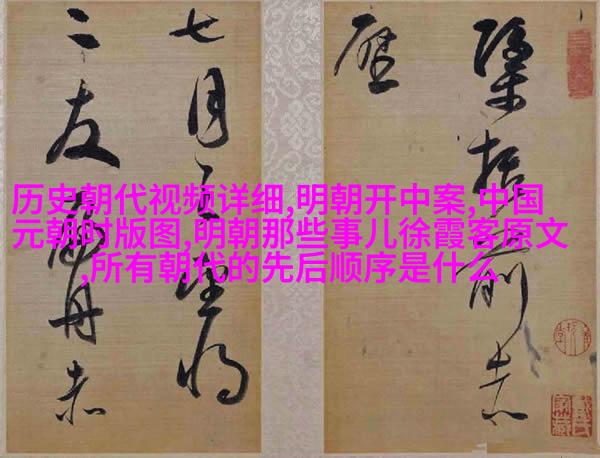 历史朝代视频详细,明朝开中案,中国
元朝时版图,明朝那些事儿徐霞客原文
,所有朝代的先后顺序是什么
括前赤
壁
七月望将
二友舟赤